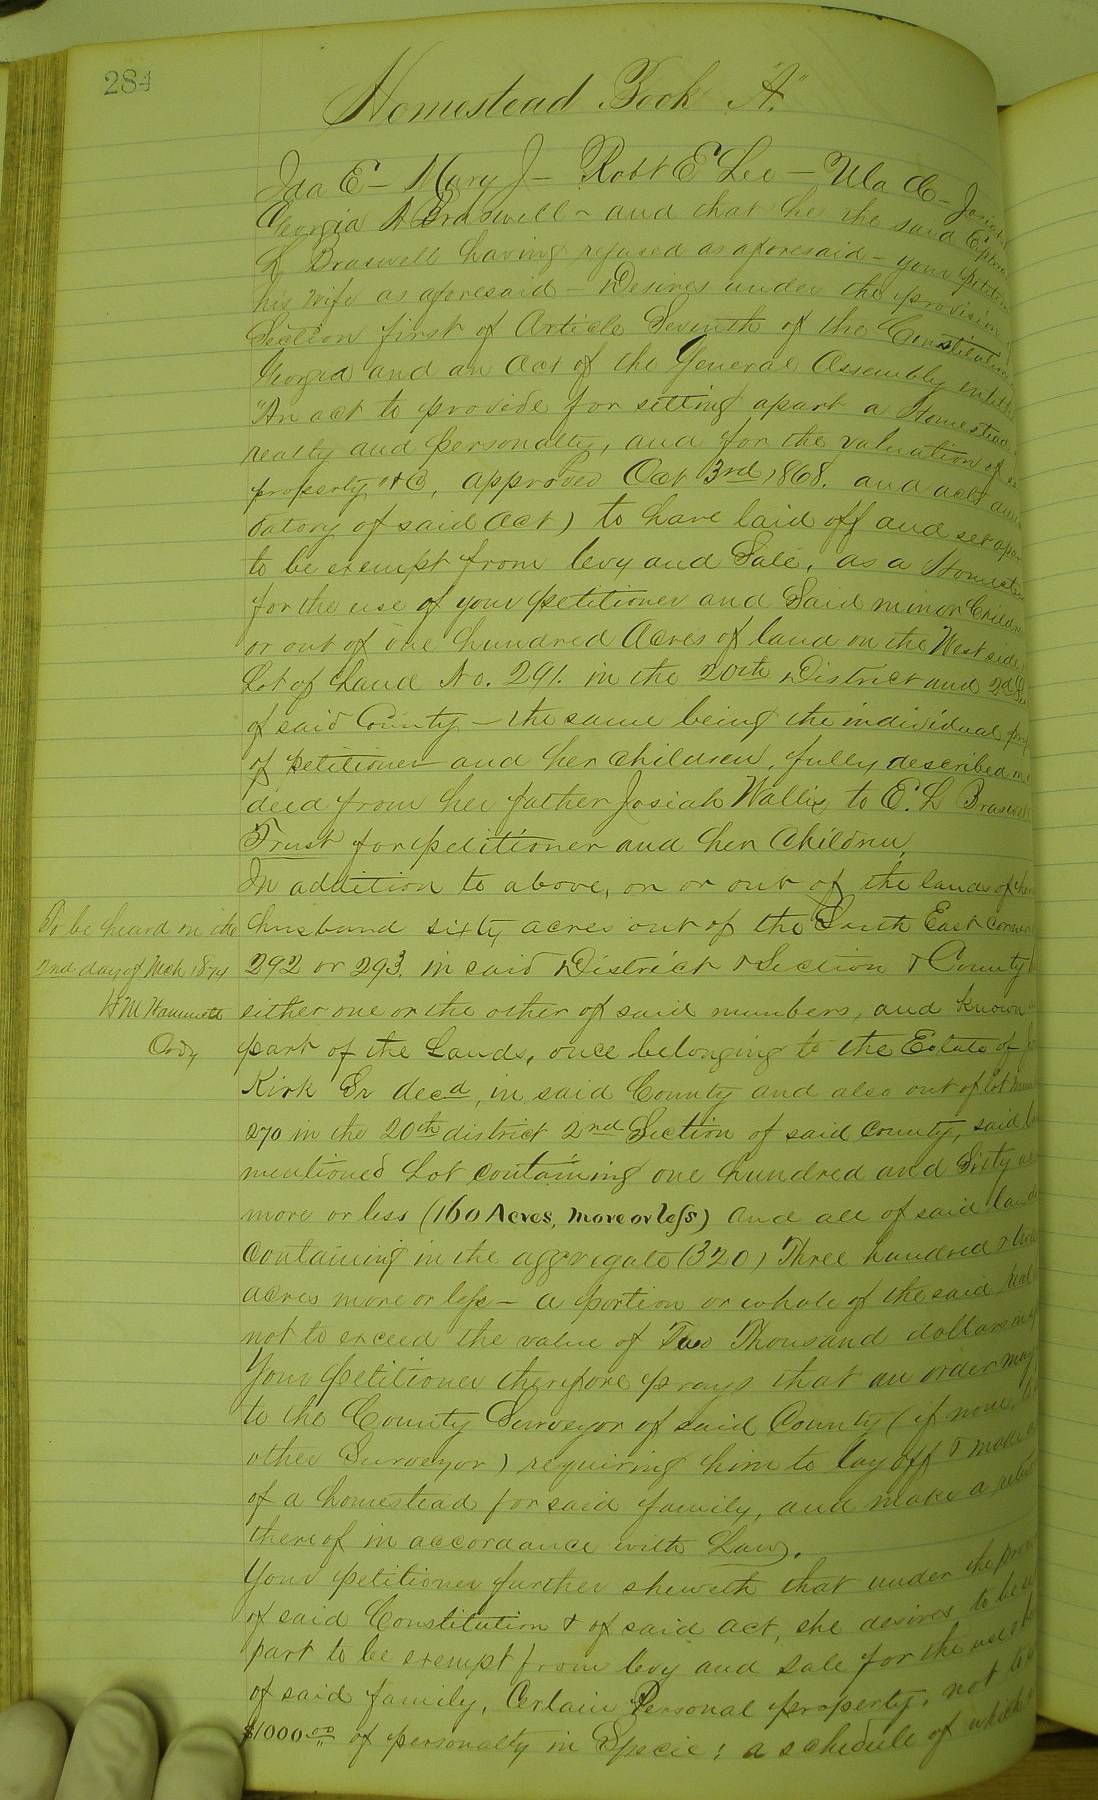 284
Homestead Book "A."
Ida E - Mary J - Robt E Lee - Ula C - Josiah
Georgia A Braswell - and that he the said Ephr
L Braswell having refused as aforesaid - your petition
his wife as aforesaid - Desires under the provision
Section first of Article Seventh of the Constitution
Georgia and an act of the General Assembly entitl
"An act to provide for setting apart a Homestead
realty and personalty, and for the valuation of
property" &C, approved Oct 3rd 1868. and acts amen
datory of said act) to have laid off and set apar
to be exempt from levy and Sale, as a Homeste
for the use of your petitioner and Said minor Childr
or out of one hundred Acres of land on the West side
Lot of Land No. 291. in the 20th District and 2d Se
of said County - the same being the individual prop
of petitioner and her children, fully described in
deed from her father Josiah Wallis to E. L Braswel
Trust for petitioner and her Children,
In addition to above, on or out of the lands of her
husband sixty acres out of the South East corner
292 or 293. in said District & Section & County
either one or the other of said numbers, and known
part of the Lands, once belonging to the Estate of
Kirk Sr decd, in said County and also out of Lot num
270 in the 20th district 2nd Section of said county, said
mentioned Lot containing one hundred and Sixty ac
more or less (160 Acres, more or less) and all of said land
Containing in the aggregate (320) Three hundred & twen
acres more or less - a portion or whole of the said real
not to exceed the value of Two Thousand dollars in
Your petitioner therefore prays that an order may
to the County Surveyor of said County (if none,
other Surveyor) requiring him to lay off & make
of a homestead for said family, and make a retur
thereof in accordance with Law.
Your petitioner further sheweth that under the prov
of said Constitution & of said act, she desires to be se
part to be exempt from levy and sale for the use
of said family, Certain Personal property, not to
$1000.00 of personalty in Specie; a schedule of which
To be heard on the
2nd day of Mch 1874
H M Hammett
Ordy